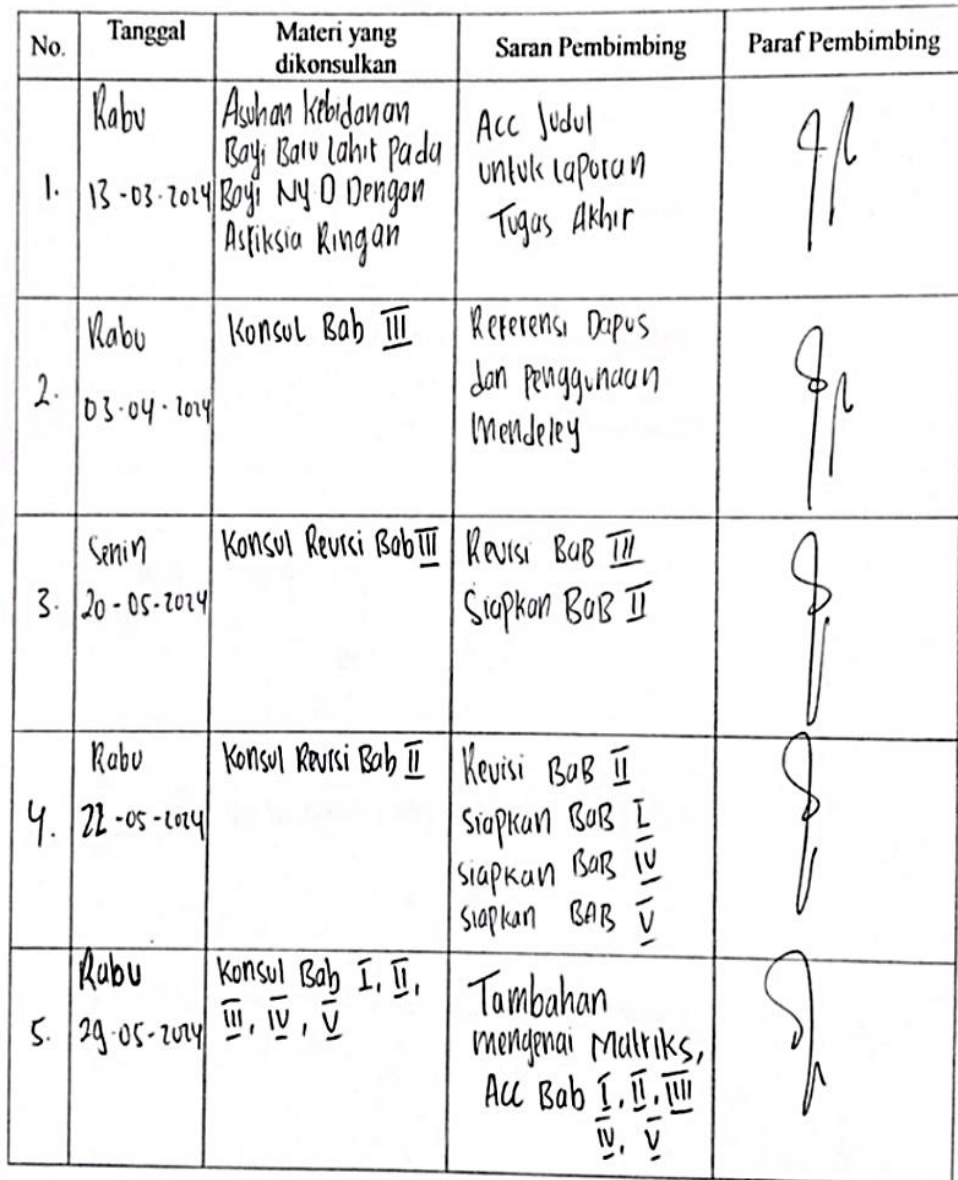 No. Tanggal Materi yang dikonsulkan Saran Pembimbing Paraf Pembimbing
1.
Rabu
13-03-2024
Asuhan Kebidanan
Bayi Baru Lahir Pada
Bayi Ny D Dengan
Asfiksia Ringan
Acc Judul
untuk Laporan
Tugas Akhir
2.
Rabu
03-04-2024
Konsul Bab III
Referensi Dapus
dan penggunaan
Mendeley
3.
Senin
20-05-2024
Konsul Revisi Bab III
Revisi BAB III
Siapkan BAB II
4.
Rabu
22-05-2024
Konsul Revisi Bab II
Revisi BAB II
siapkan BAB I
siapkan BAB IV
siapkan BAB V
5.
Rabu
29-05-2024
Konsul Bab I, II,
III, IV, V
Tambahan
mengenai Matriks,
Acc Bab I, II, III
IV, V